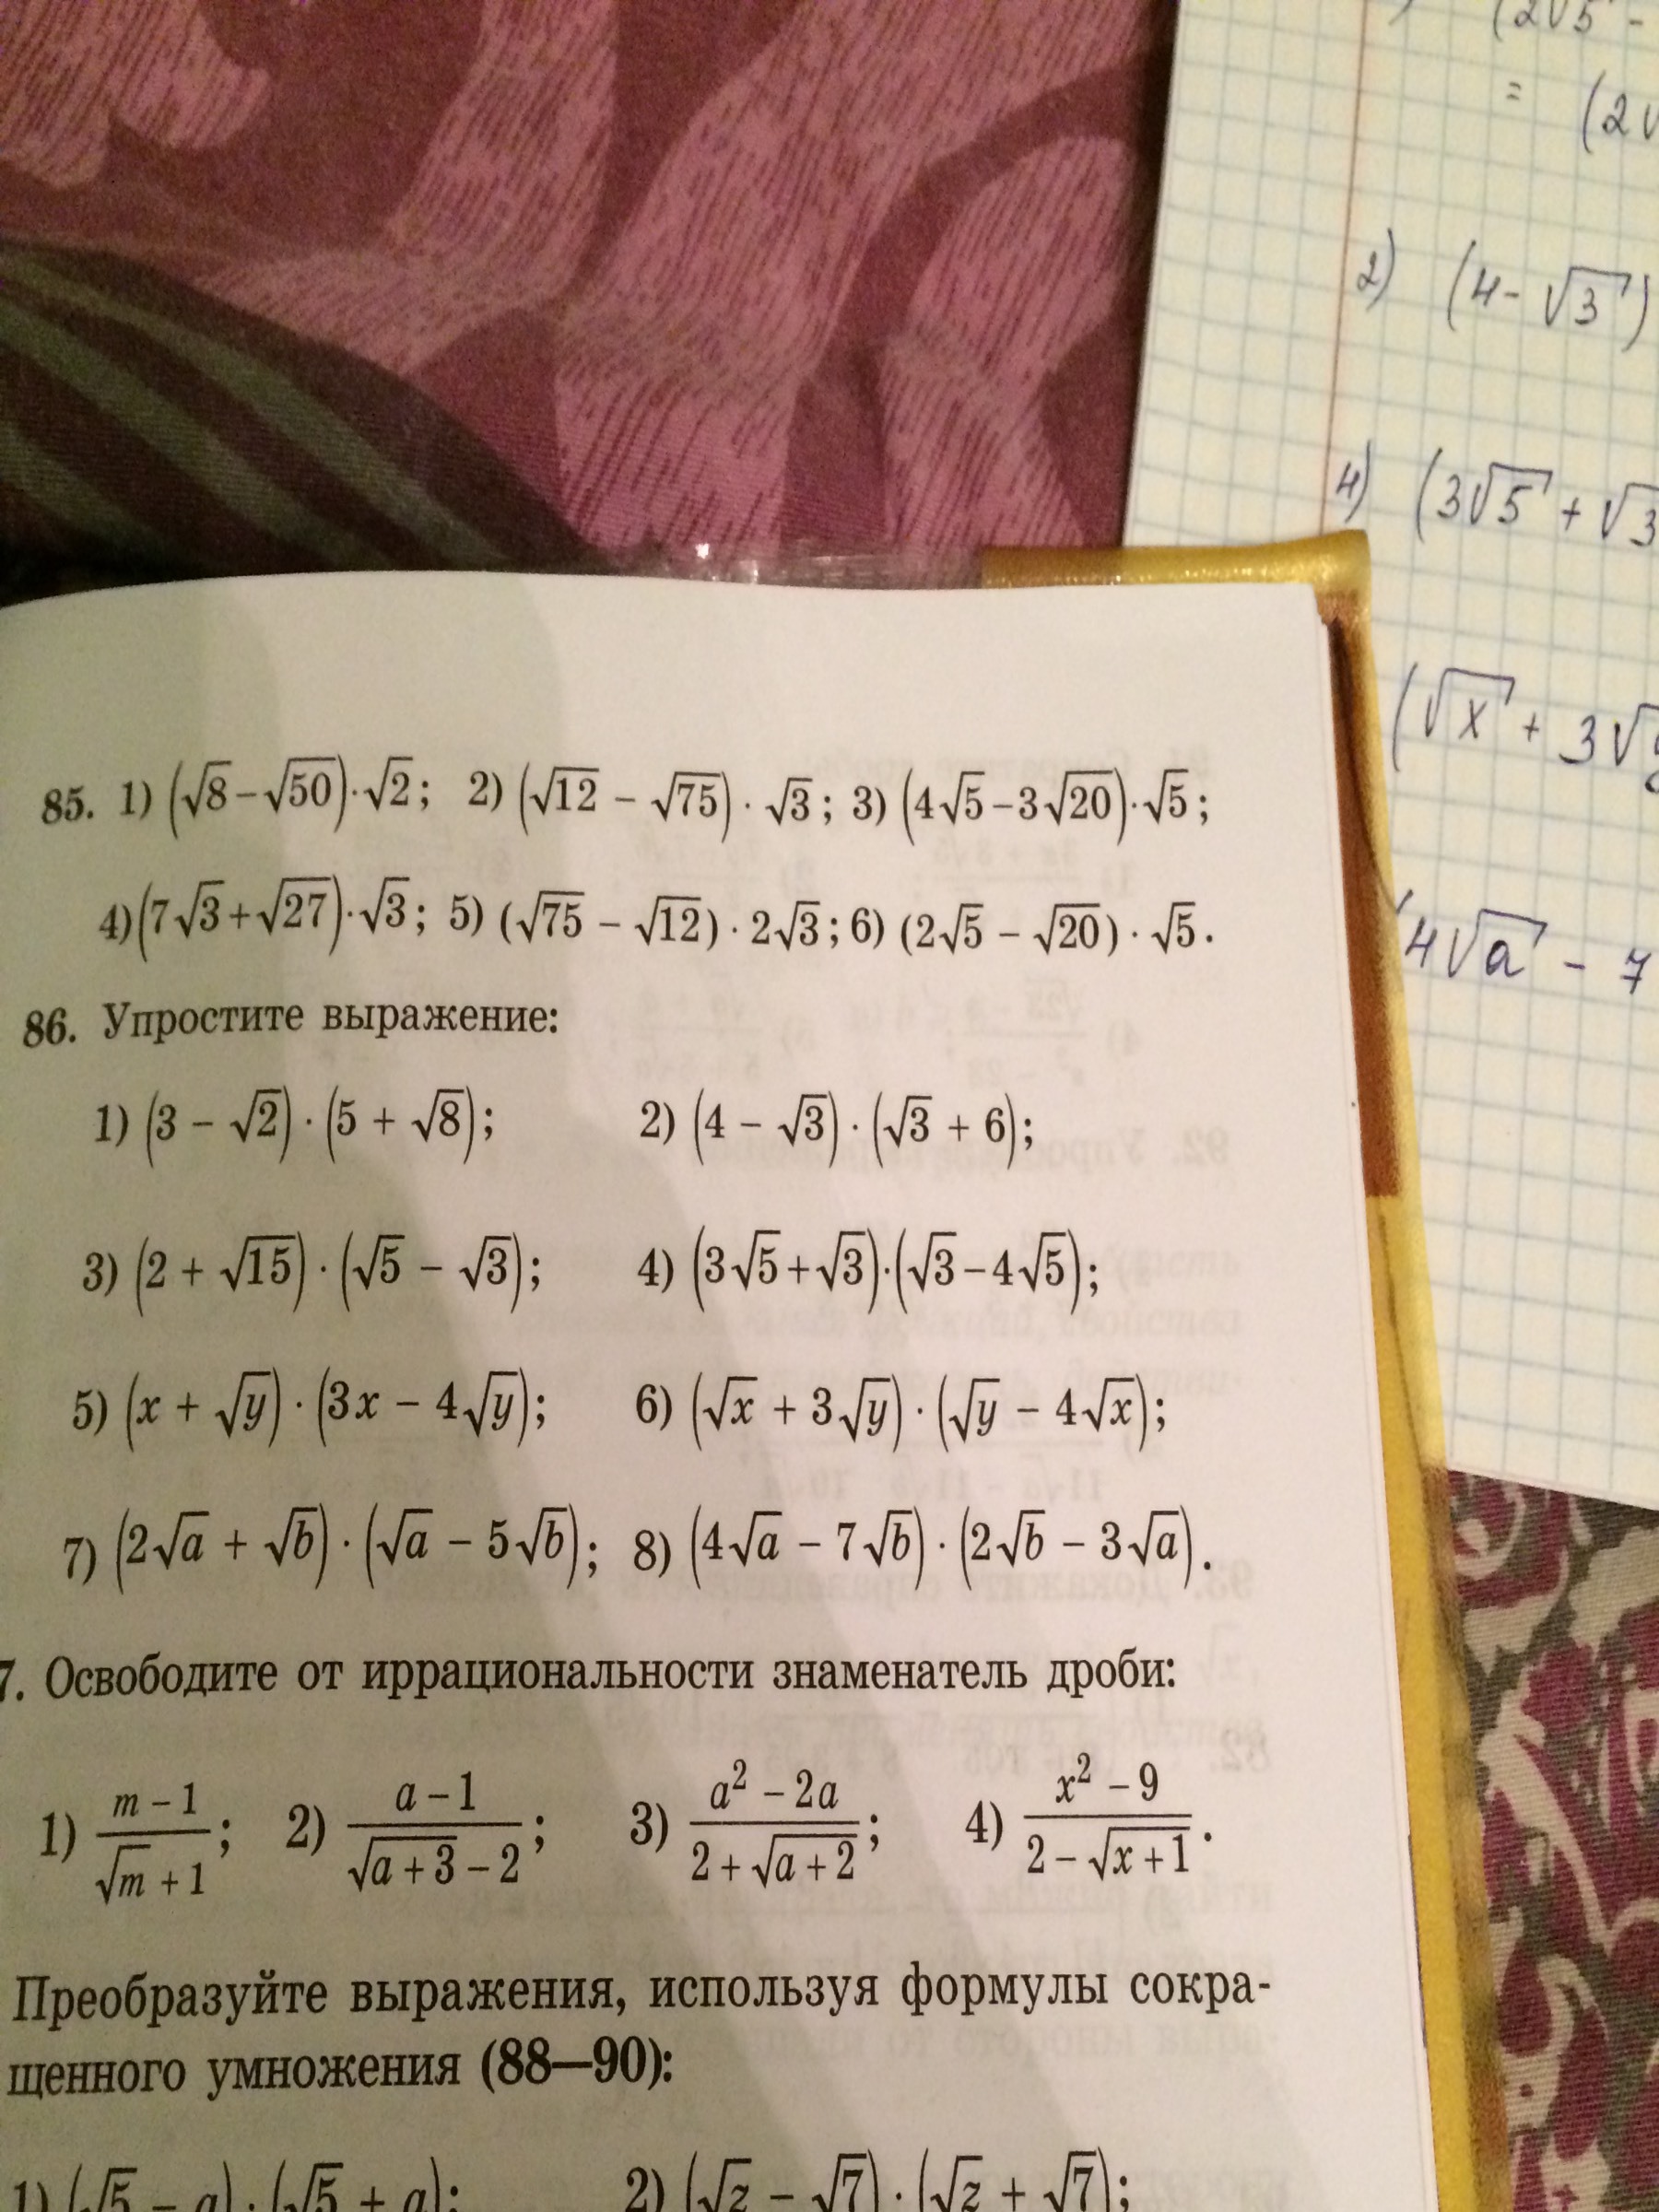 (2√5 -
= (2√
2) (4 - √3)
4) (3√5 + √3
(√x + 3√y
4√a - 7
85. 1) (√8 − √50) · √2; 2) (√12 − √75) · √3; 3) (4√5 − 3√20) · √5;
4) (7√3 + √27) · √3; 5) (√75 − √12) · 2√3; 6) (2√5 − √20) · √5.
86. Упростите выражение:
1) (3 − √2) · (5 + √8); 2) (4 − √3) · (√3 + 6);
3) (2 + √15) · (√5 − √3); 4) (3√5 + √3) · (√3 − 4√5);
5) (x + √y) · (3x − 4√y); 6) (√x + 3√y) · (√y − 4√x);
7) (2√a + √b) · (√a − 5√b); 8) (4√a − 7√b) · (2√b − 3√a).
7. Освободите от иррациональности знаменатель дроби:
1) (m − 1)/(√m + 1); 2) (a − 1)/(√(a + 3) − 2); 3) (a² − 2a)/(2 + √(a + 2)); 4) (x² − 9)/(2 − √(x + 1)).
Преобразуйте выражения, используя формулы сокра-
щенного умножения (88—90):
1) (√5 − a) · (√5 + a); 2) (√z − √7) · (√z + √7);